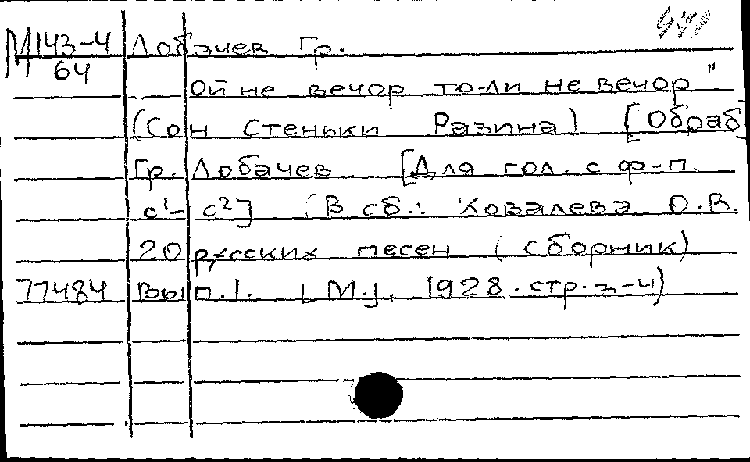 М143-4 Лобачев Гр.
64
Ой не вечор то-ли не вечор"
(Сон Стеньки Разина) [Обраб
Гр. Лобачев [Для гол. с ф-п.
c¹-c²] (В сб.: Ковалева О.В.
20 русских песен (сборник)
77484 Вып. I. [М.], 1928. стр. 2-4)